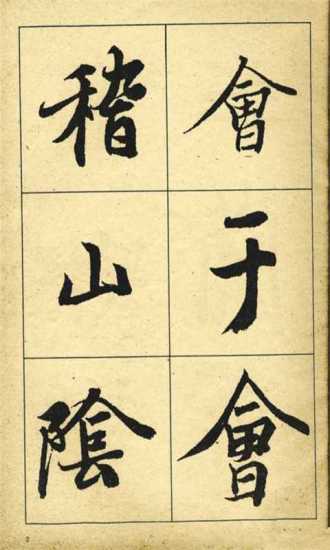 會于會
稽山陰
2